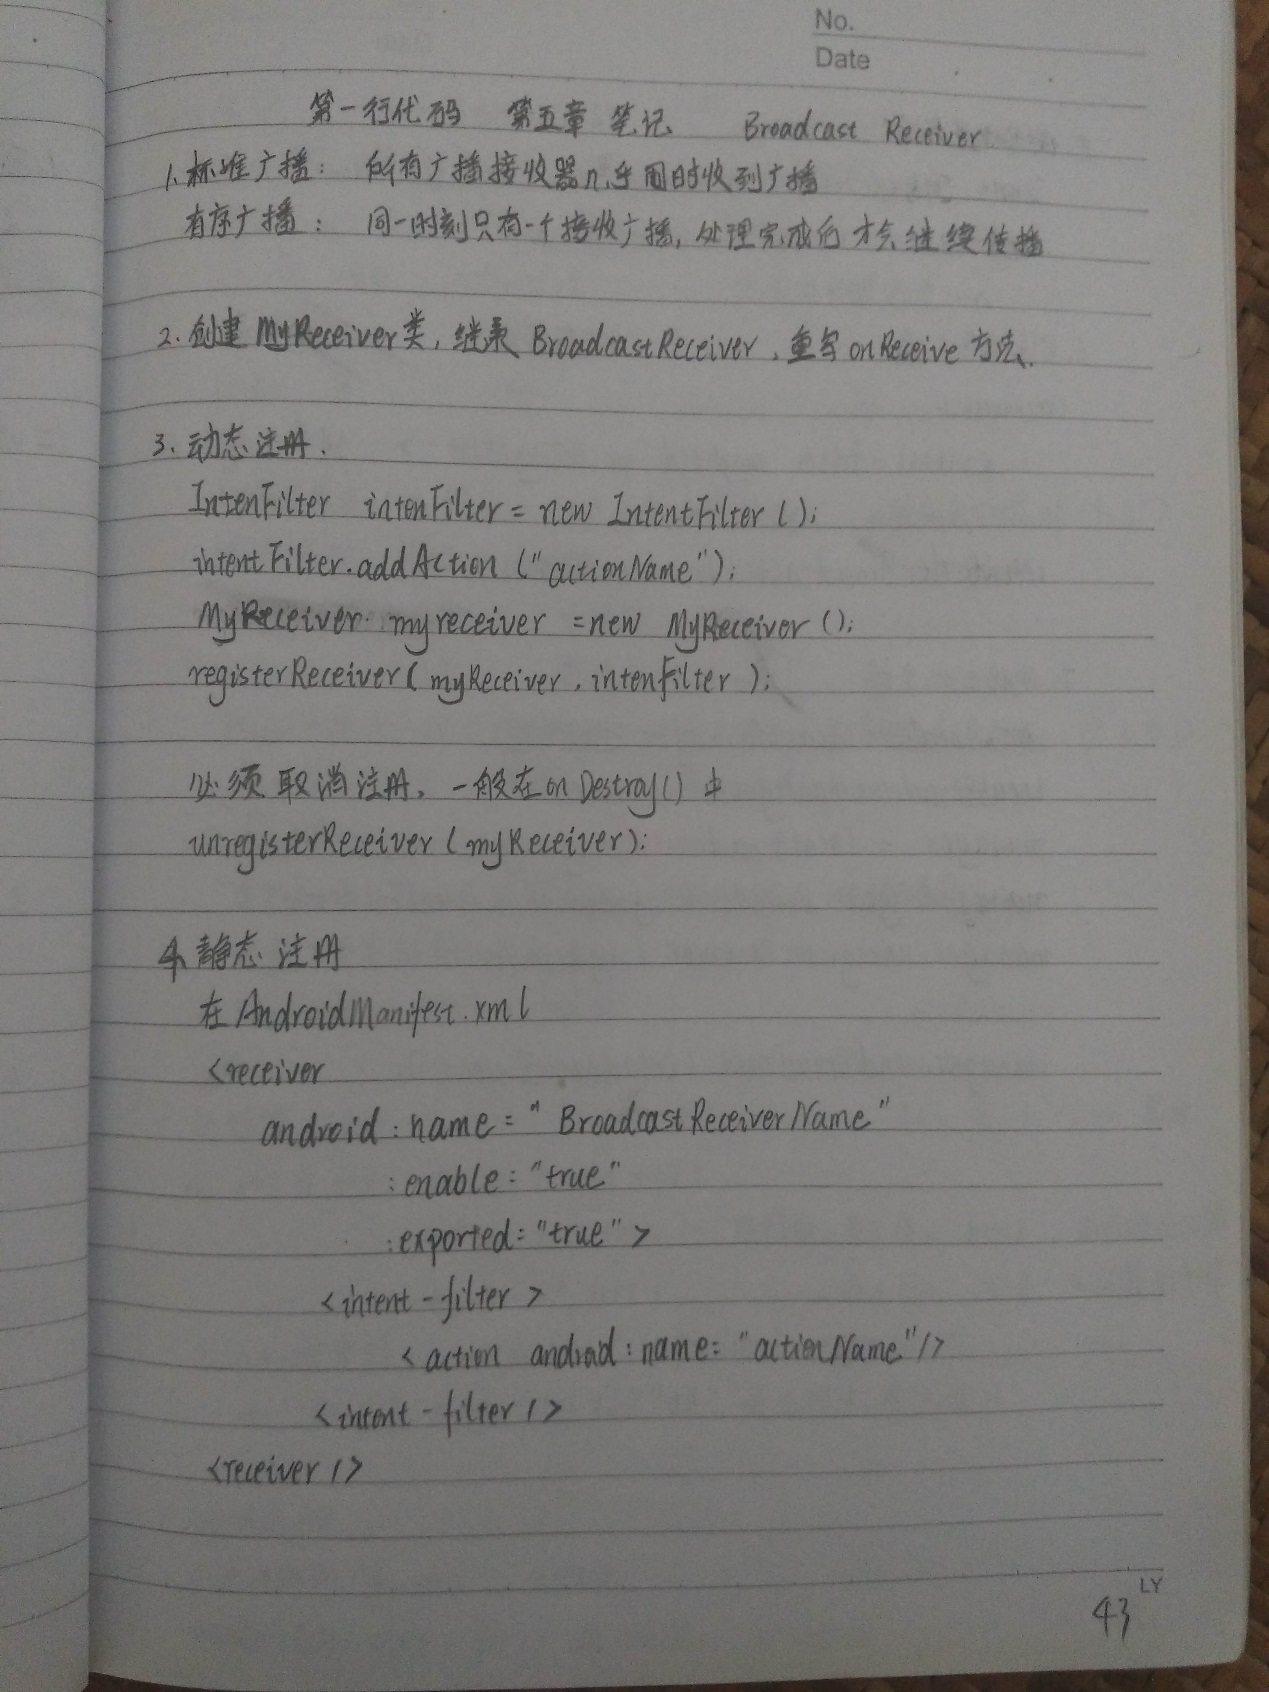 No.
Date
第一行代码 第五章 笔记 Broadcast Receiver
1、标准广播： 所有广播接收器几乎同时收到广播
有序广播： 同一时刻只有一个接收广播，处理完成后才会继续传播
2. 创建 MyReceiver类，继承 BroadcastReceiver，重写onReceive 方法、
3、动态注册.
IntenFilter intenFilter = new IntentFilter ();
intentFilter.addAction ("actionName");
MyReceiver myreceiver =new MyReceiver ();
registerReceiver( myReceiver, intenFilter );
必须取消注册，一般在onDestroy() 中
unregisterReceiver (myReceiver);
4、静态注册
在AndroidManifest.xml
<receiver
android:name="BroadcastReceiverName"
:enable="true"
:exported="true">
<intent-filter>
<action android:name="actionName"/>
<intent-filter/>
<receiver/>
LY
43